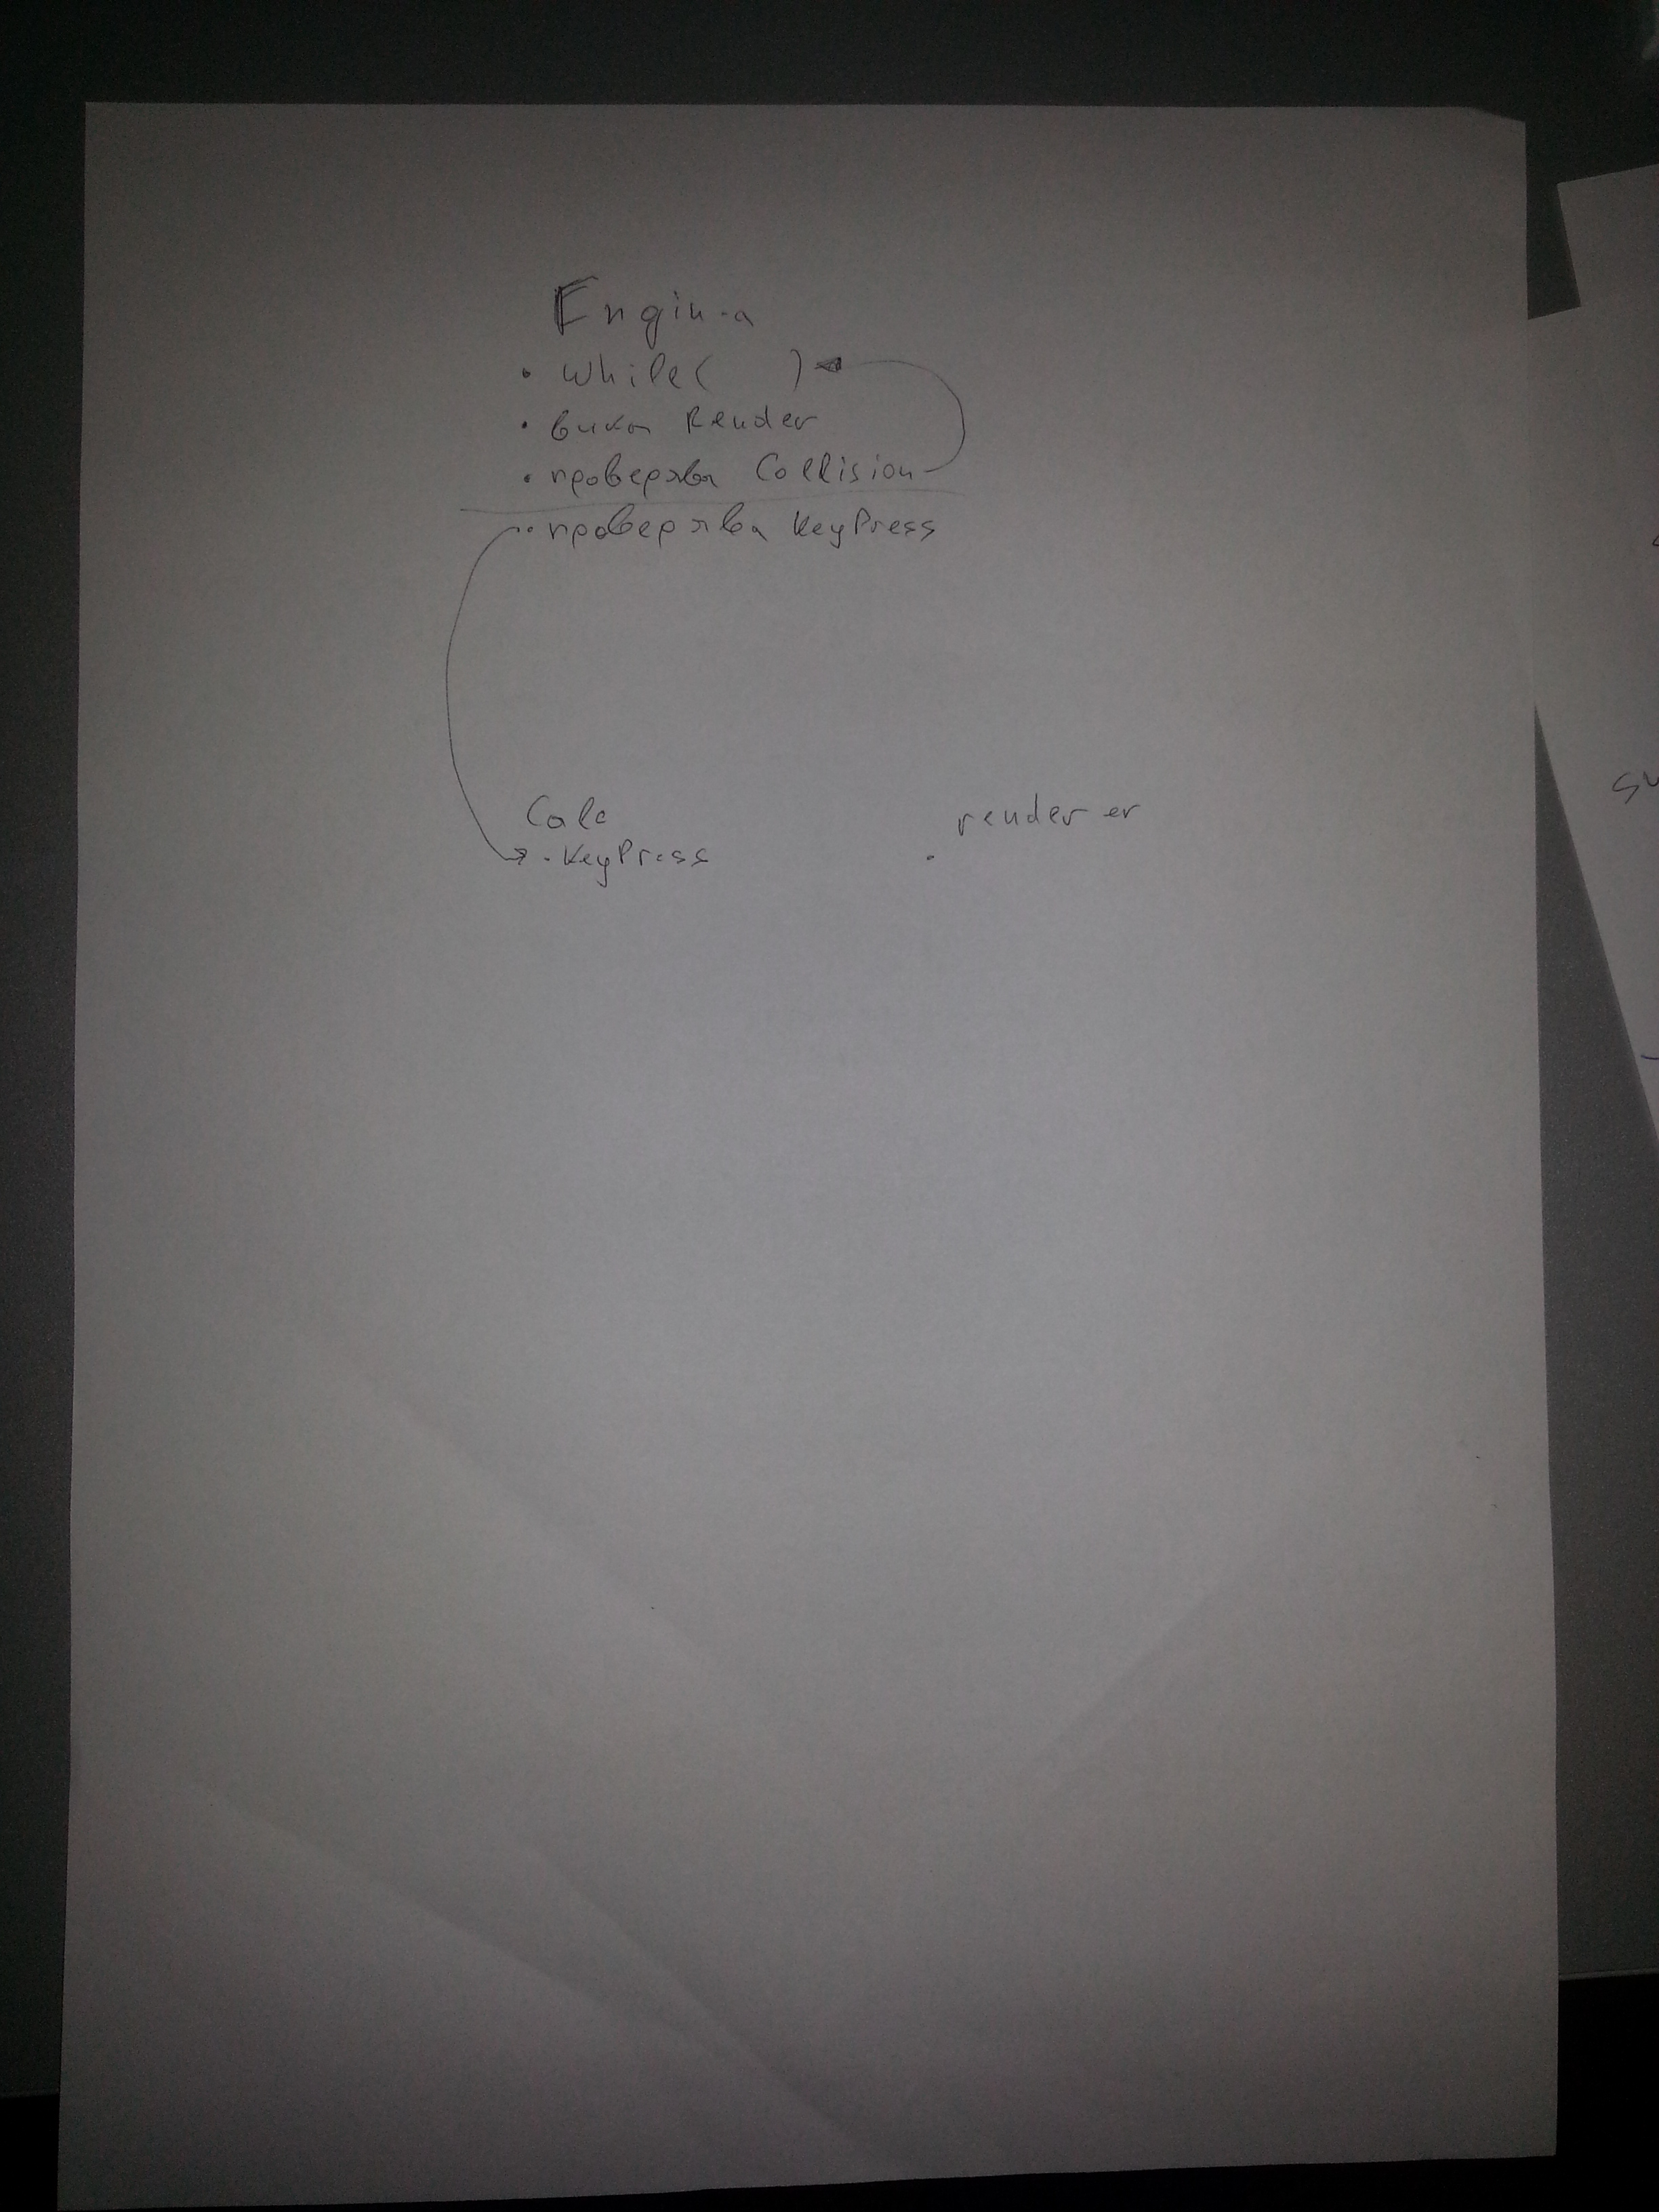 Engin-a
• while( )
• вика Render
• проверява Collision
• проверява KeyPress
Calc
• KeyPress
renderer
•